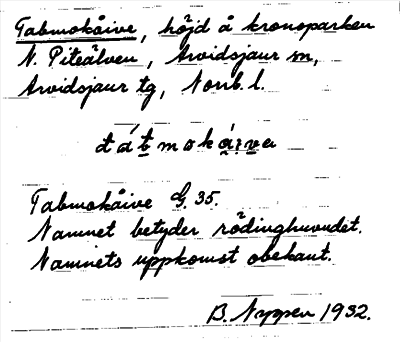 Tabmokåive, höjd å kronoparken
N. Piteälven, Arvidsjaur sn,
Arvidsjaur tg, Norrb. l.
Tabmokåive G. 35.
Namnet betyder rödinghuvudet.
Namnets uppkomst obekant.
B. Nyppen 1932.